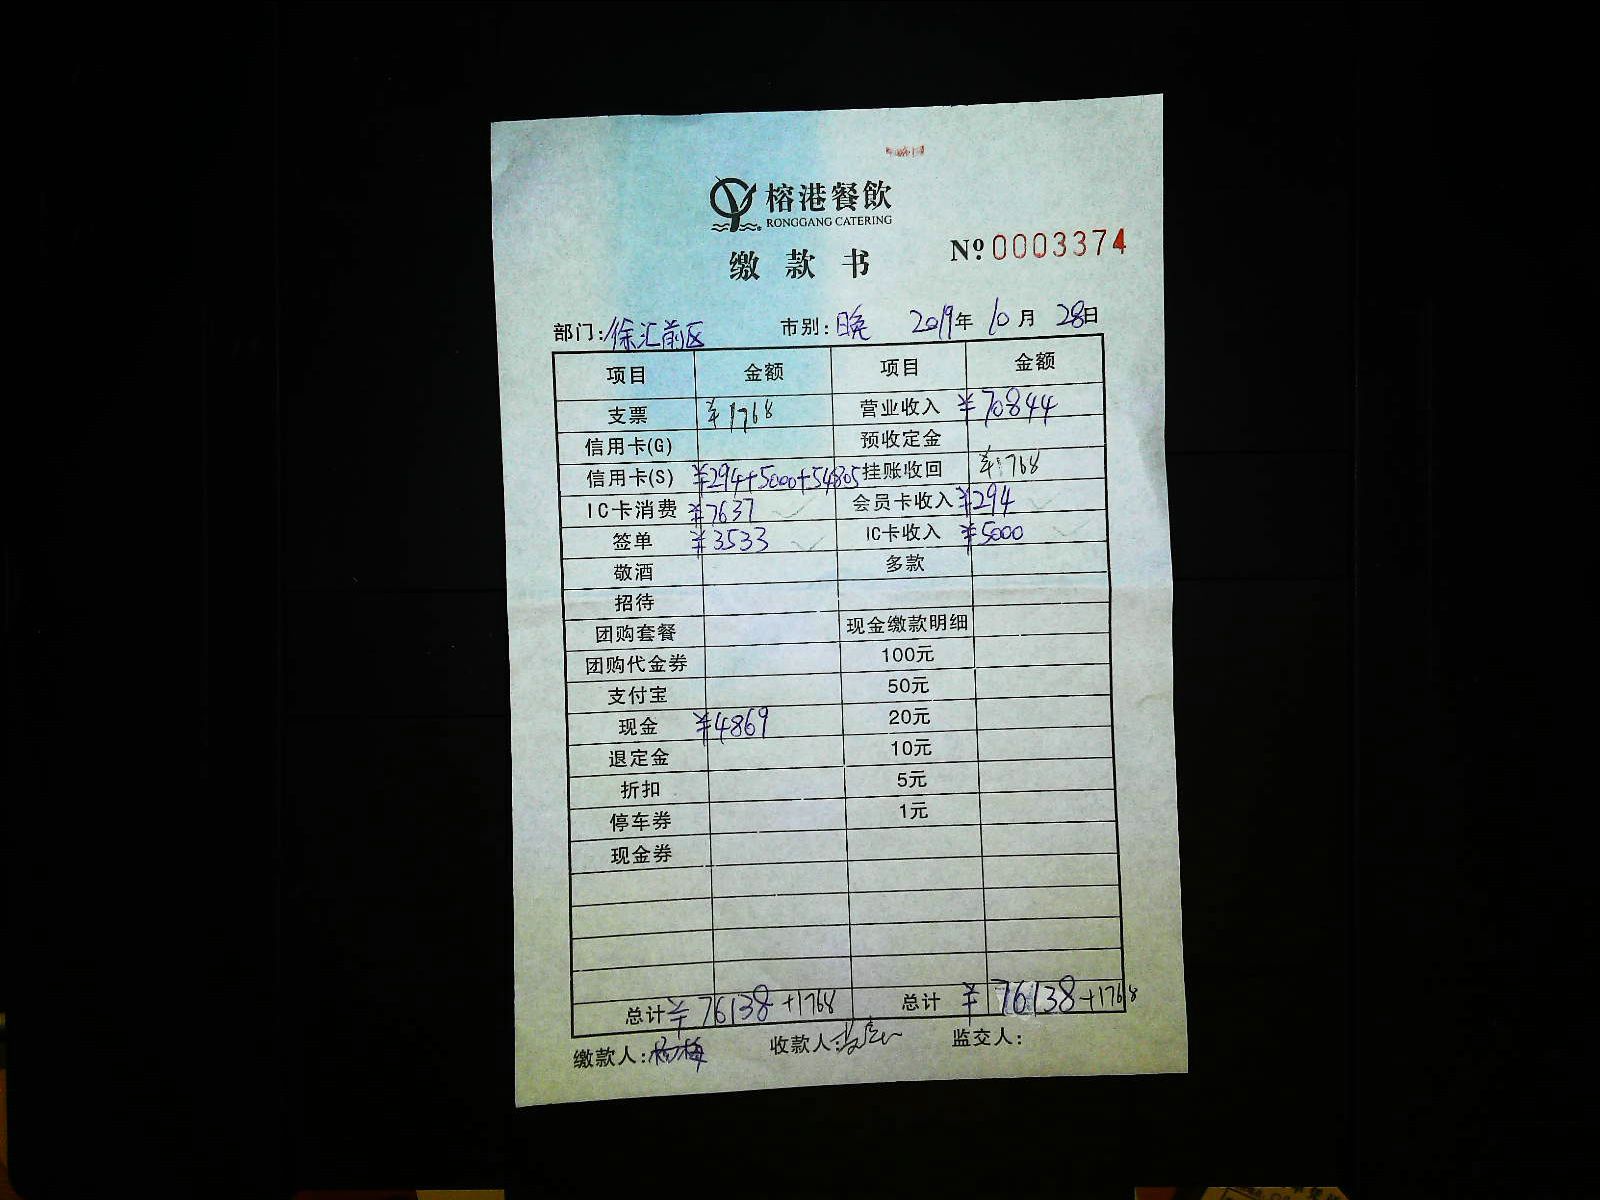 榕港餐飲
RONGGANG CATERING
缴款书
Nº 0003374
部门:徐汇前区 市别:晚 2019年10月28日
项目 金额 项目 金额
支票 ¥1768 营业收入 ¥70844
信用卡(G) 预收定金
信用卡(S) ¥294+5000+54805 挂账收回 ¥1768
IC卡消费 ¥7637 会员卡收入 ¥294
签单 ¥3533 IC卡收入 ¥5000
敬酒 多款
招待
团购套餐 现金缴款明细
团购代金券 100元
支付宝 50元
现金 ¥4869 20元
退定金 10元
折扣 5元
停车券 1元
现金券
总计 ¥76138+1768 总计 ¥76138+1768
缴款人:杨梅 收款人: 监交人: